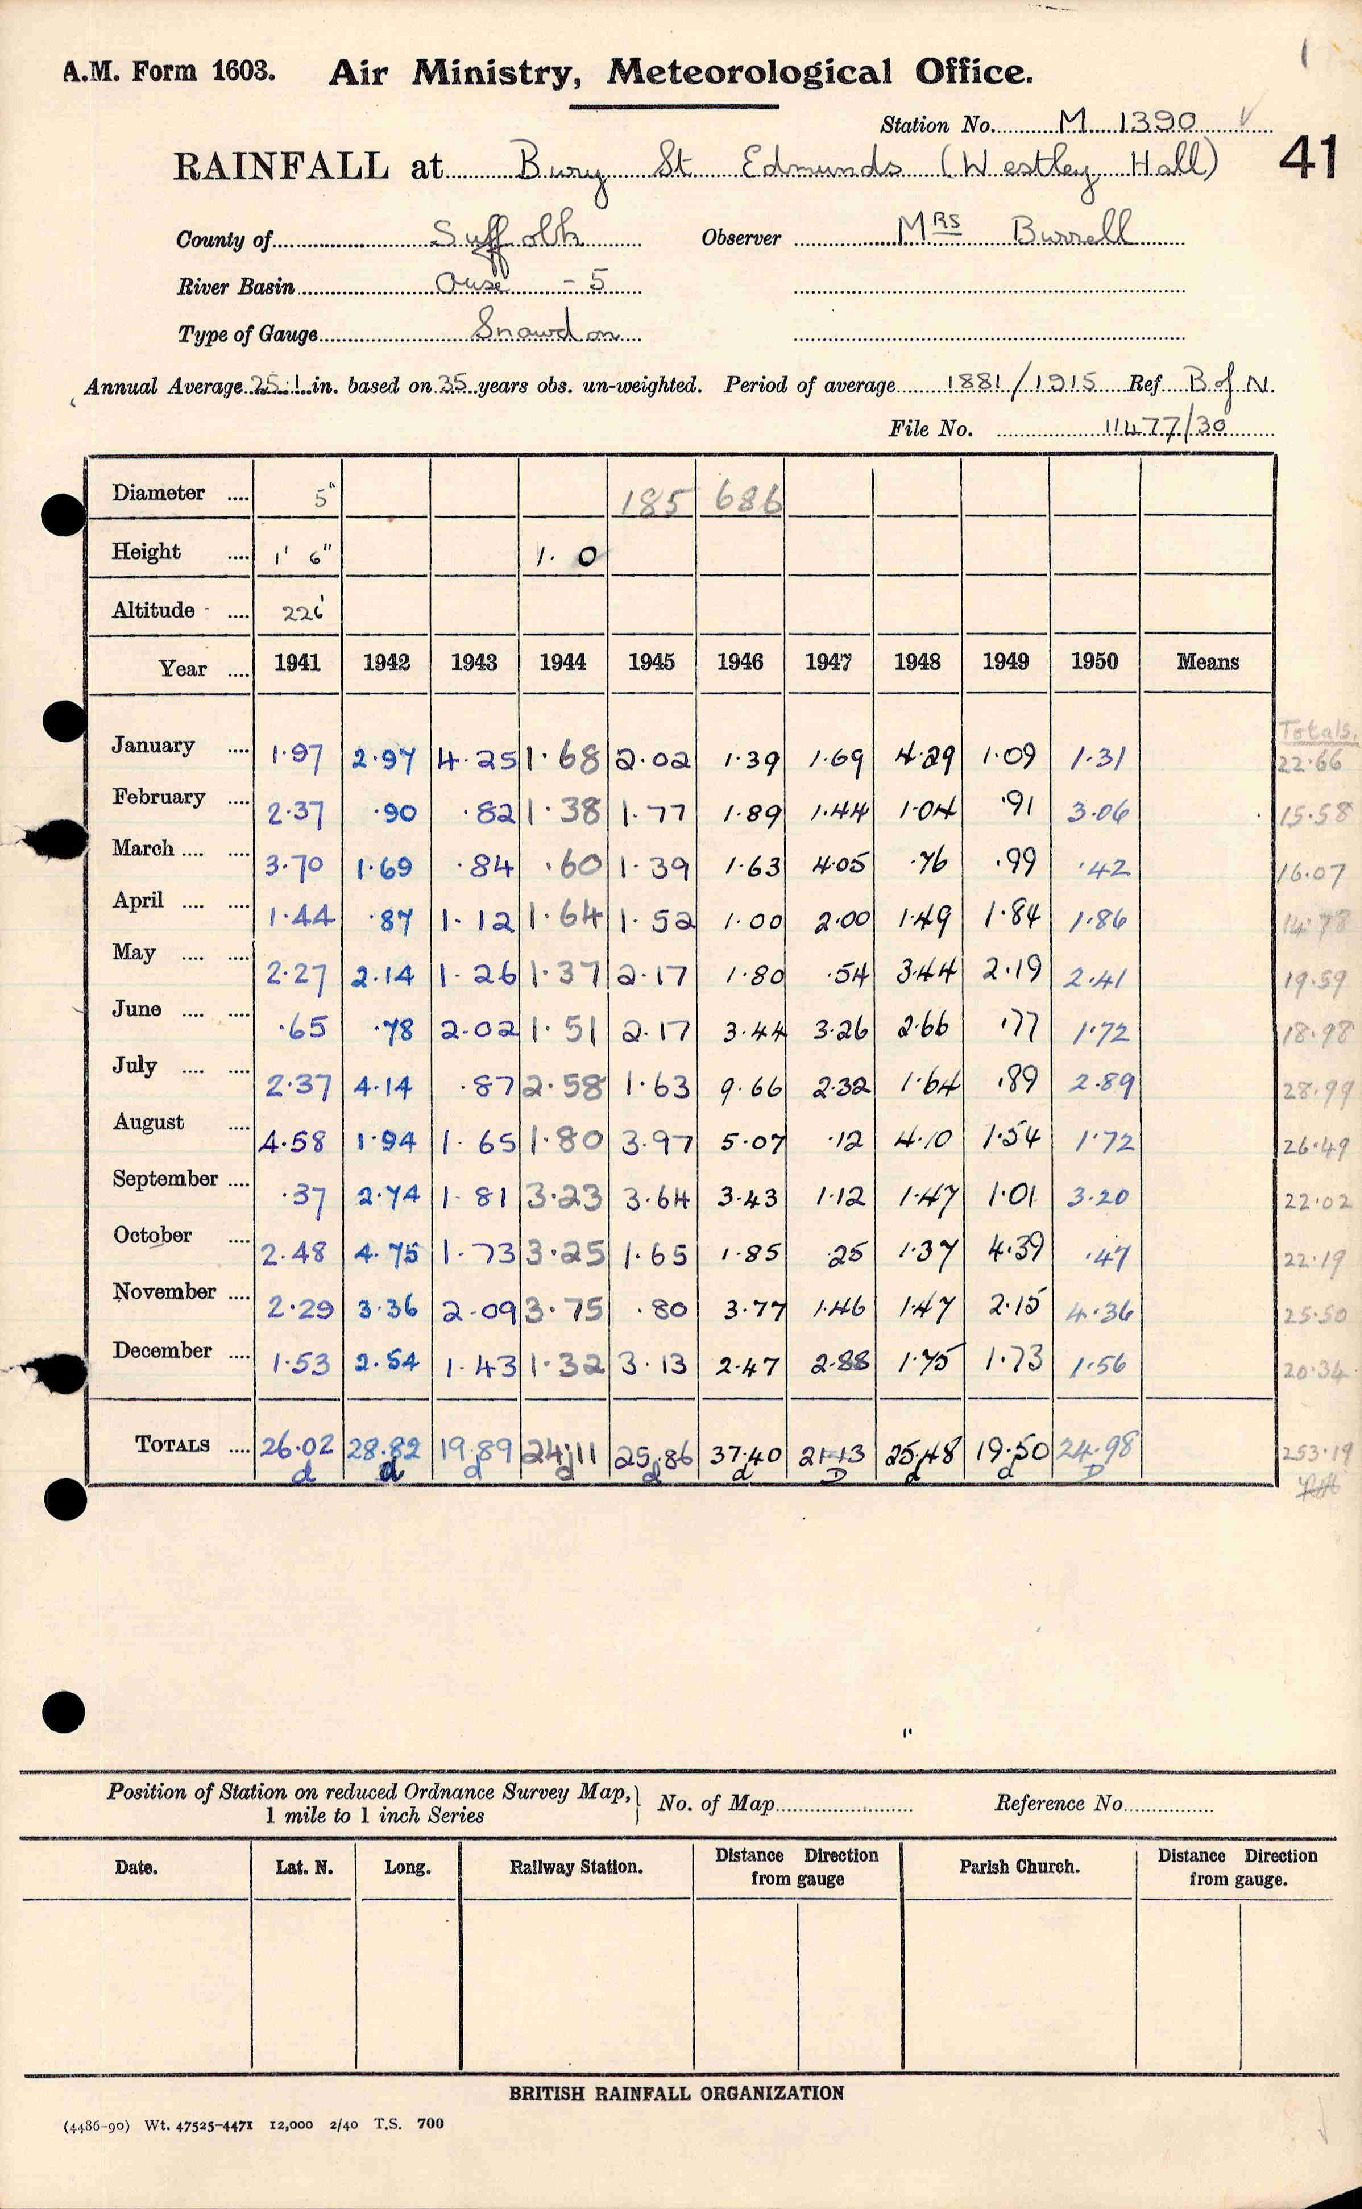 A.M. Form 1603. Air Ministry, Meteorological Office.
Station No. M 1390
RAINFALL at Bury St Edmunds (Westley Hall) 41
County of Suffolk Observer Mrs Burrell
River Basin Ouse - 5
Type of Gauge Snowdon
Annual Average 25.1 in. based on 35 years obs. un-weighted. Period of average 1881/1915 Ref B of N.
File No. 11477/30
Diameter .... 5" 185 686
Height .... 1' 6" 1. 0
Altitude .... 226'
Year .... 1941 1942 1943 1944 1945 1946 1947 1948 1949 1950 Means
Totals.
January .... 1.97 2.97 4.25 1.68 2.02 1.39 1.69 4.29 1.09 1.31 22.66
February .... 2.37 .90 .82 1.38 1.77 1.89 1.44 1.04 .91 3.06 15.58
March .... .... 3.70 1.69 .84 .60 1.39 1.63 4.05 .76 .99 .42 16.07
April .... .... 1.44 .87 1.12 1.64 1.52 1.00 2.00 1.49 1.84 1.86 14.78
May .... .... 2.27 2.14 1.26 1.37 2.17 1.80 .54 3.44 2.19 2.41 19.59
June .... .... .65 .78 2.02 1.51 2.17 3.44 3.26 2.66 .77 1.72 18.98
July .... .... 2.37 4.14 .87 2.58 1.63 9.66 2.32 1.64 .89 2.89 28.99
August .... 4.58 1.94 1.65 1.80 3.97 5.07 .12 4.10 1.54 1.72 26.49
September .... .37 2.74 1.81 3.23 3.64 3.43 1.12 1.47 1.01 3.20 22.02
October .... 2.48 4.75 1.73 3.25 1.65 1.85 .25 1.37 4.39 .47 22.19
November .... 2.29 3.36 2.09 3.75 .80 3.77 1.46 1.47 2.15 4.36 25.50
December .... 1.53 2.54 1.43 1.32 3.13 2.47 2.88 1.75 1.73 1.56 20.34
TOTALS .... 26.02 28.82 19.89 24.11 25.86 37.40 21.13 25.48 19.50 24.98 253.19
d d d d d d D d d D
Position of Station on reduced Ordnance Survey Map, No. of Map Reference No.
1 mile to 1 inch Series
Date. Lat. N. Long. Railway Station. Distance Direction from gauge Parish Church. Distance Direction from gauge.
BRITISH RAINFALL ORGANIZATION
(4486-90) Wt. 47525-4471 12,000 2/40 T.S. 700